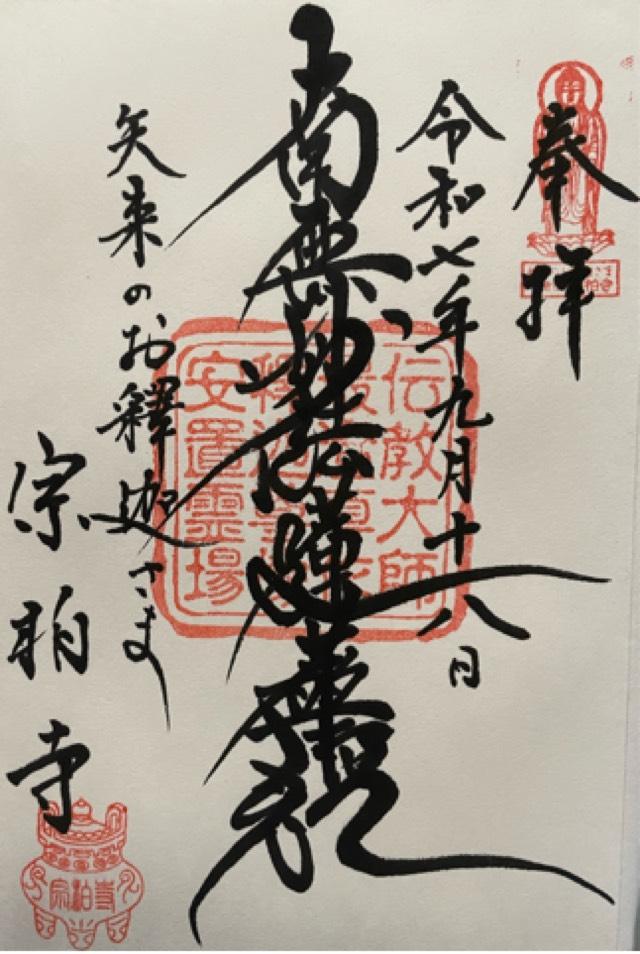 奉拝
令和七年九月十八日
南無妙法蓮華経
伝教大師
安置霊場
矢来のお釋迦さま
宗柏寺
宗柏寺